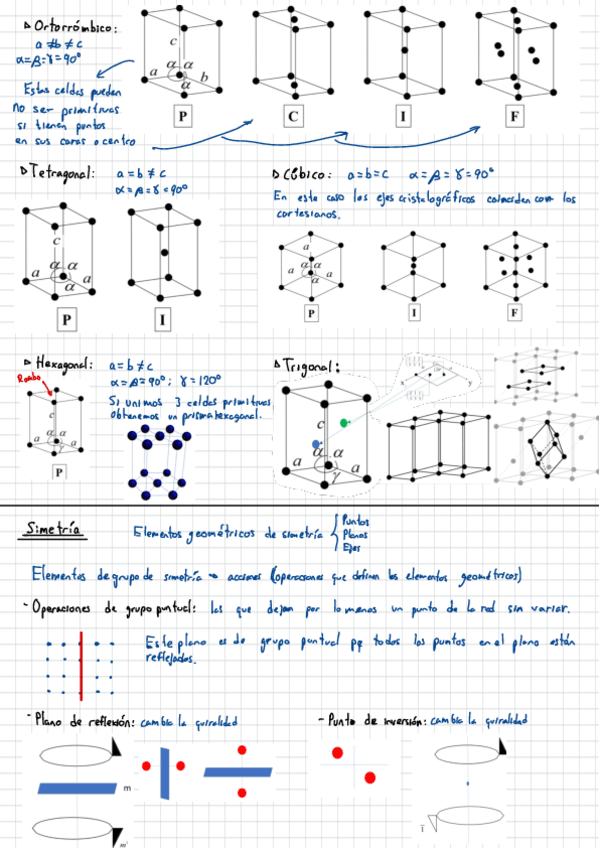 ▷ Ortorrómbico:
a ≠ b ≠ c
α = β = γ = 90°
Estas celdas pueden
no ser primitivas
si tienen puntos
en sus caras o centro
c
α α
a α b
P
C
I
F
▷ Tetragonal: a = b ≠ c
α = β = γ = 90°
c
α α
a α a
P
I
▷ Cúbico: a = b = c α = β = γ = 90°
En este caso los ejes cristalográficos coinciden con los
cartesianos.
a
α α
a α a
P
I
F
▷ Hexagonal: a = b ≠ c
α = β = 90°; γ = 120°
Rombo
Si unimos 3 celdas primitivas
obtenemos un prisma hexagonal.
c
α α
a γ a
P
▷ Trigonal:
c
α α
a γ a
x y
Simetría
Elementos geométricos de simetría { Puntos
Planos
Ejes
Elementos de grupo de simetría → acciones (operaciones que definen los elementos geométricos)
- Operaciones de grupo puntual: las que dejan por lo menos un punto de la red sin variar.
Este plano es de grupo puntual pq todos los puntos en el plano están
reflejados.
- Plano de reflexión: cambia la quiralidad
- Punto de inversión: cambia la quiralidad
m
m'
1̅